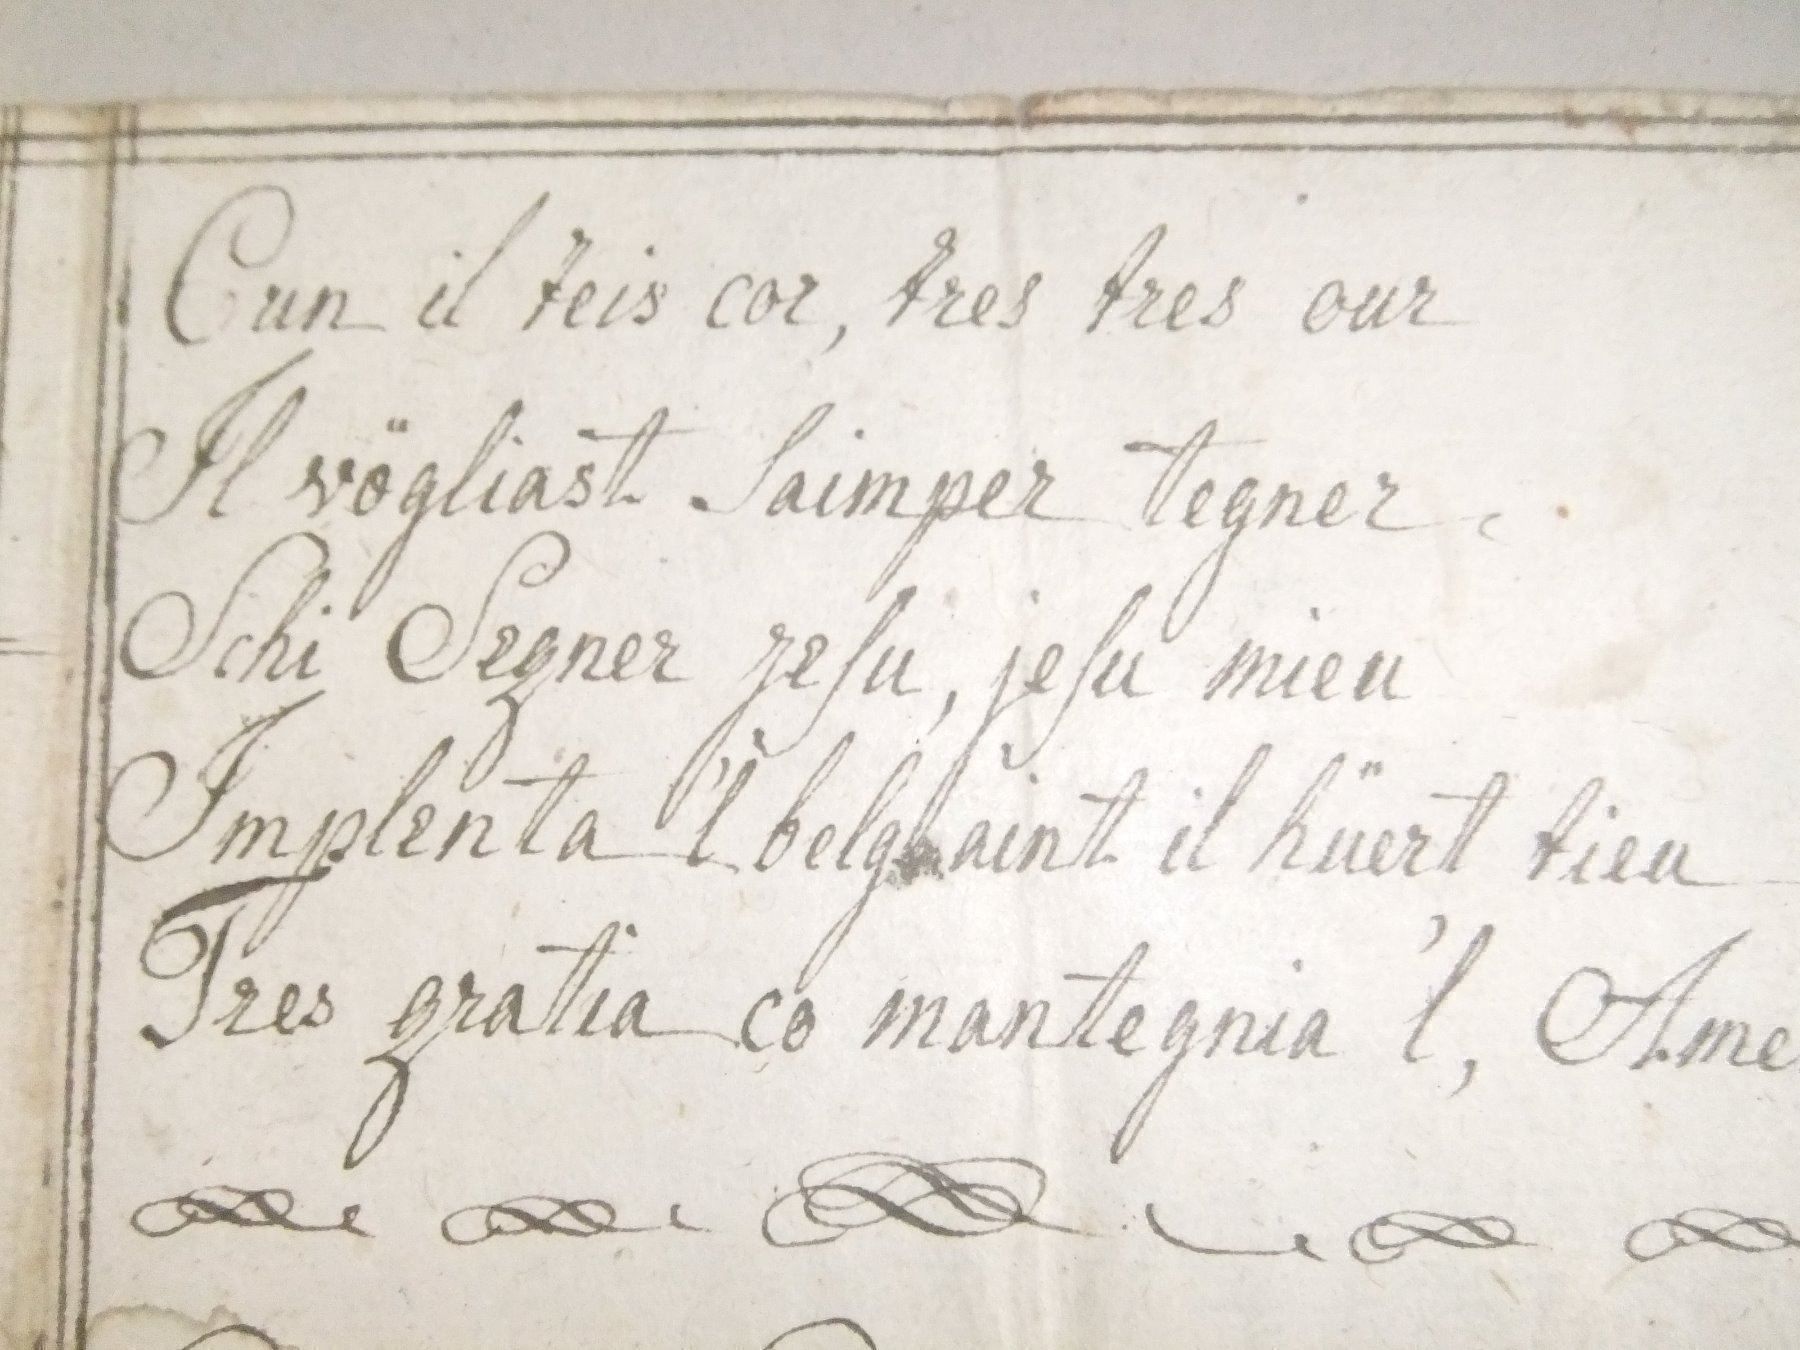 Cun il teis cor, tres tres our
Il vögliast Saimper tegner.
Schi Segner jesu, jesu mieu
Implenta 'l bel g aint il hüert tieu
Tres gratia co mantegnia 'l, Ame